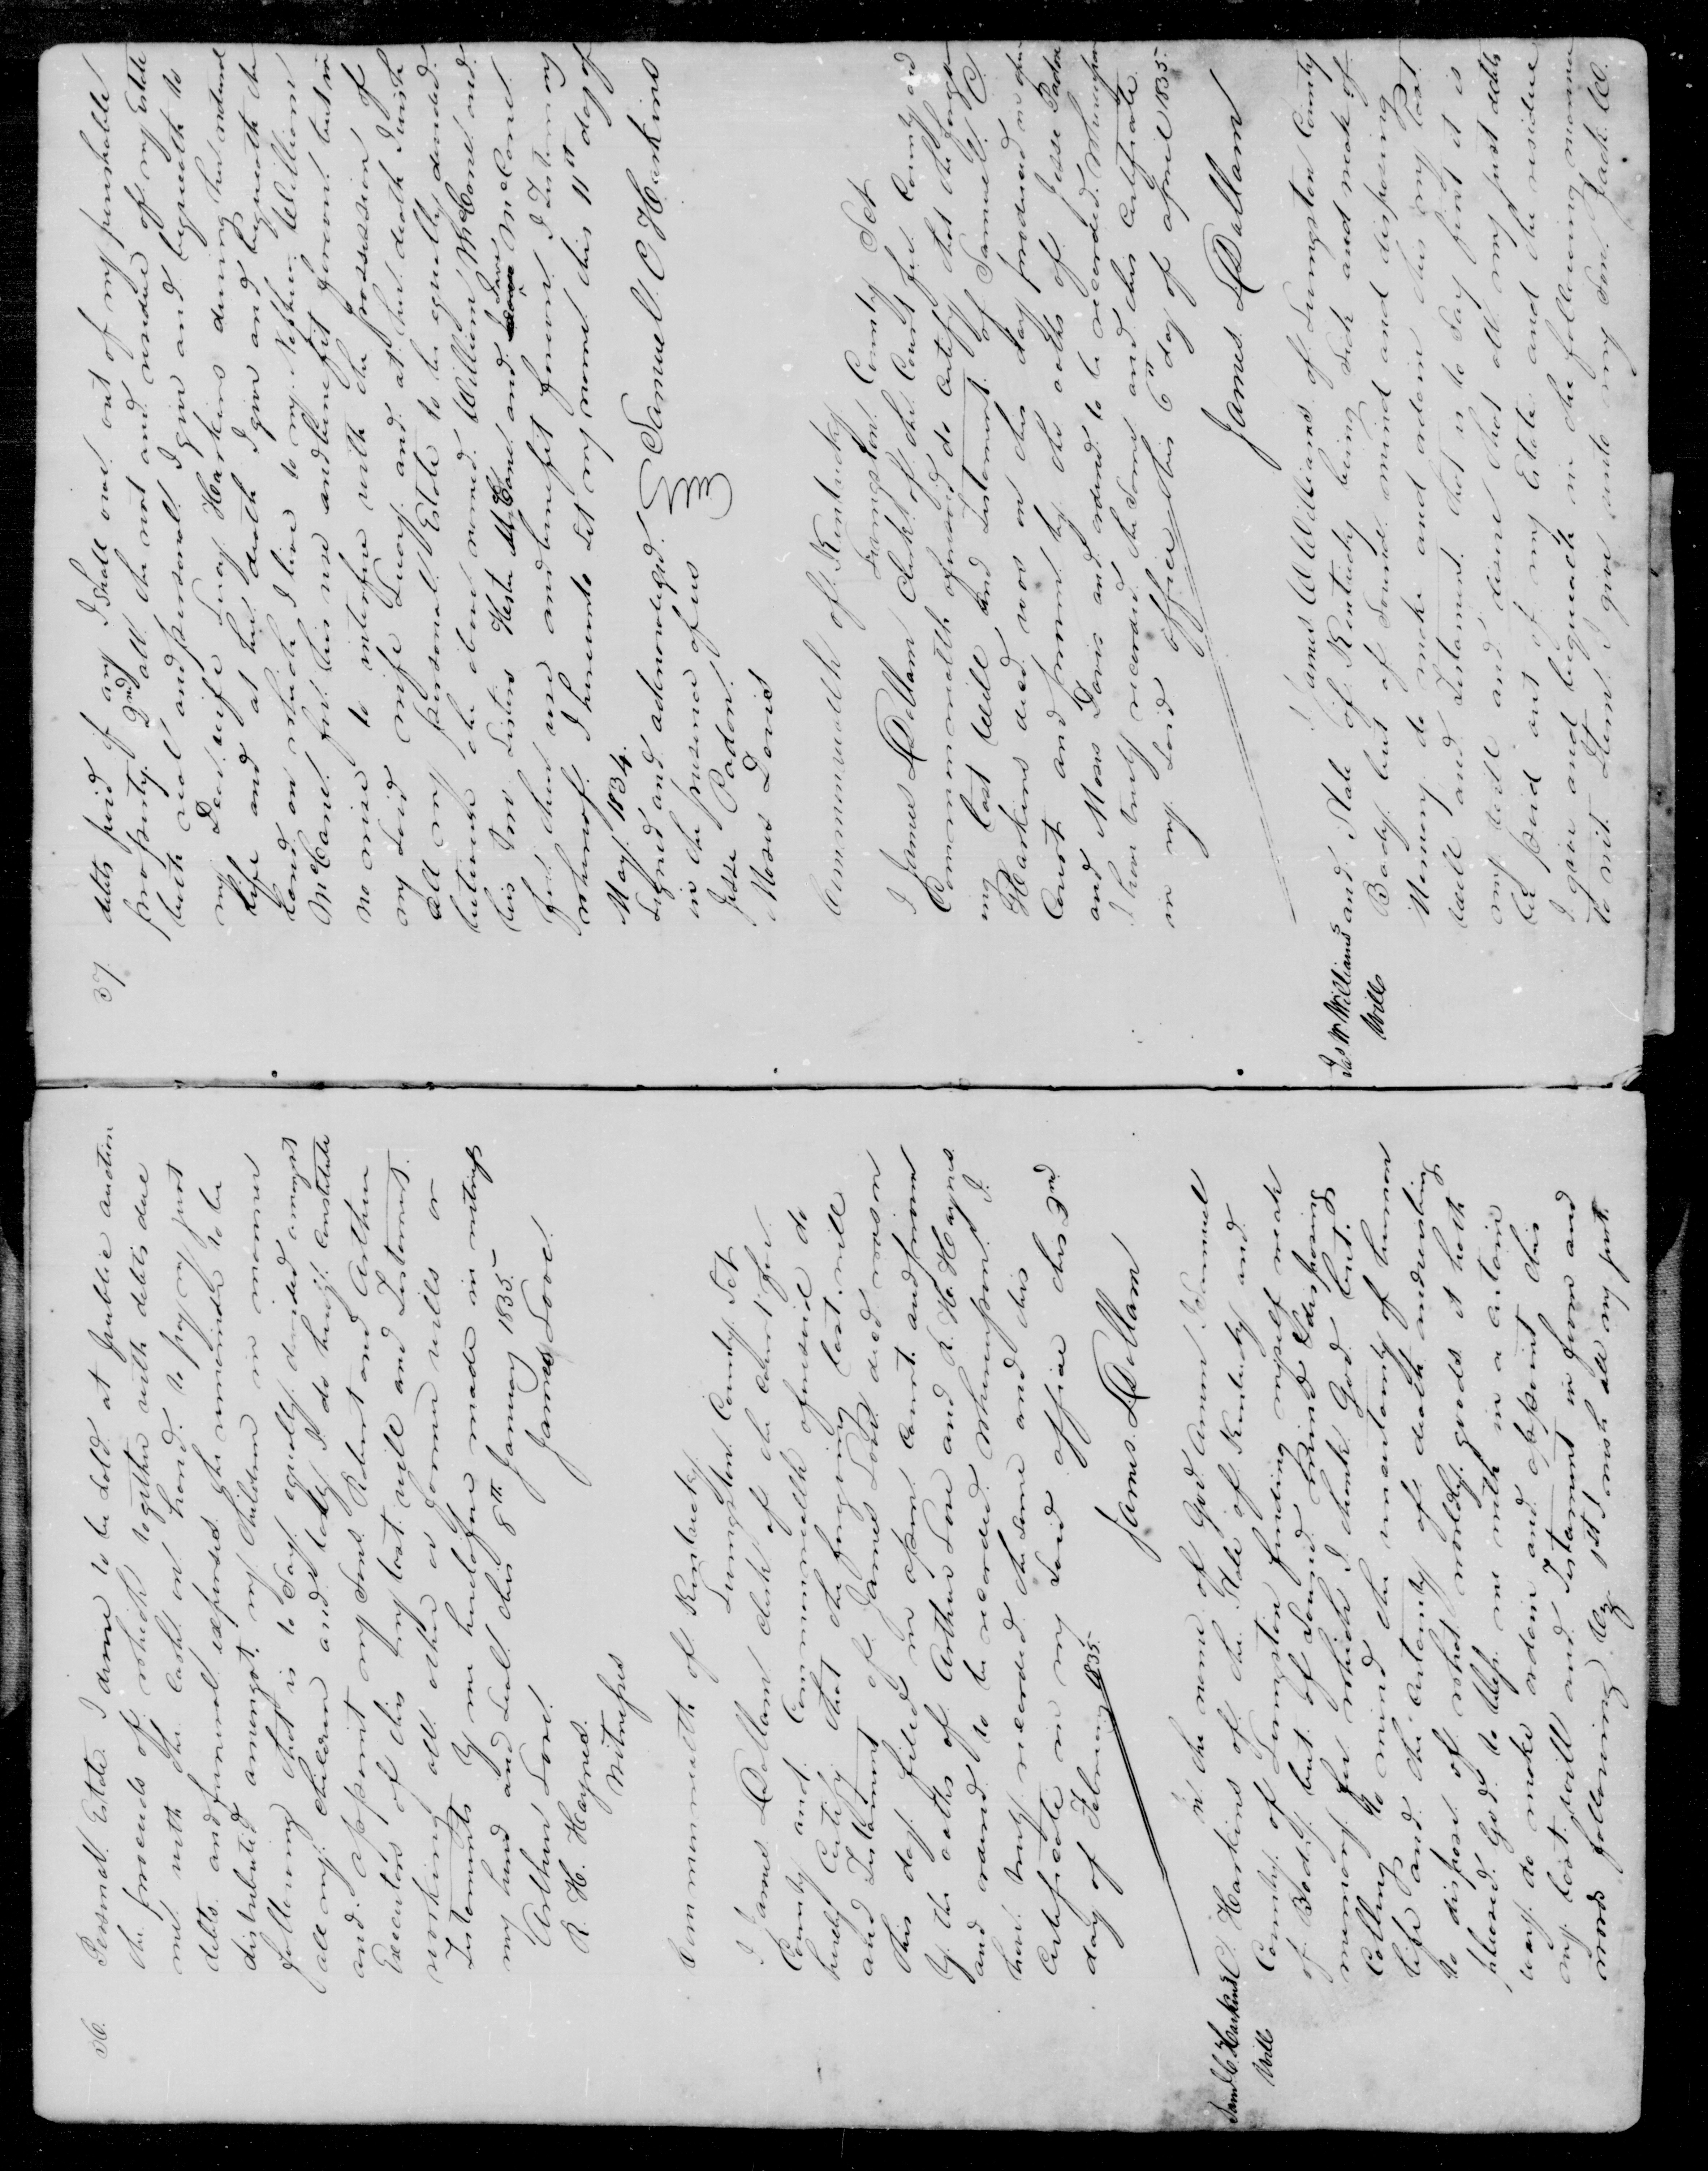 36.
Personal Estate I desire to be Sold at Publick auction
the proceeds of which together with debts due
me with the Cash on hand to pay my just
debts and funeral expenses the remainder to be
distributed amongst my Children in manner
following that is to Say equally divided amongst
all my children and lastly I do hereby constitute
and appoint my Sons Robert and Arthur
Executors of this my last will and Testament
revoking all other or former wills or
Testaments by me heretofore made in witness
my hand and Seal this 8th January 1835
Arthur Love James Love
R. H. Haynes
Witness
Commonwealth of Kentucky
Livingston County Set
I James L Dallam clerk of the Court for
County and Commonwealth aforesaid do
hereby Certify that the foregoing last will
and Testament of James Love decd was on
this day filed in open Court and proven
by the oaths of Arthur Love and R. H. Haynes
and ordered to be recorded Whereupon I
have truly recorded the Same and this
Certificate in my Said office this 3nd
day of February 1835.
James L Dallam
Saml C. Harkins
Will
In the name of God Amen I Samuel
C. Harkins of the State of Kentucky and
County of Livingston finding myself weak
of Body but of Sound mind & disposing
memory for which I thank God but
Calling to mind the uncertainty of human
life and the Certainty of death and desiring
to dispose of what worldly goods it hath
pleased God to bless me with in a certain
way do make ordain and appoint this
my last will and Testament in form and
words following Viz 1st I wish all my just
37
debts paid if any I Shall owe out of my perishable
property 2nd all the rest and residue of my Estate
both real and personal I give and bequeath to
my Dear wife Lucy Harkins during her natural
life and at her death I give and bequeath the
Land on which I live to my Nephew William
McCanel for his use and benefit forever but in
no wise to interfere with the possession of
my Said wife Lucy and at her death I wish
all my personal Estate to be equally divided
between the above named William McCanel and
his Two Sisters Hester McCanel and Jane McCanel
for their use and benefit forever I Testimony
whereof I hereunto Set my name this 11th day of
May 1834.
Signed and acknowledged Samuel C Harkins
in the presence of us
Jesse Padon
Moses Davis
Commonwealth of Kentucky
Livingston County Set
I James L Dallam Clerk of the Court for County and
Commonwealth aforesaid do Certify that the forgo
ing last Will and Testament of Samuel C.
Harkins decd was on this day produced in open
Court and proven by the oaths of Jesse Padon
and Moses Davis and ordered to be recorded Whereupon
I have truly recorded the Same and this Certificate
in my Said office this 6th day of April 1835.
James L Dallam
Jas W Williams
Will
I James W Williams of Livingston County
and State of Kentucky being Sick and weak of
Body but of Sound mind and disposing
Memory do make and ordain this my last
will and Testament that is to Say first it is
my will and desire that all my just debts
be paid out of my Estate and the residue
I give and bequeath in the following manner
to wit Item I give unto my Son Zach W.